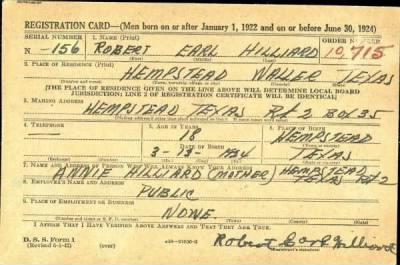 REGISTRATION CARD—(Men born on or after January 1, 1922 and on or before June 30, 1924)
SERIAL NUMBER 1. NAME (Print) ORDER NUMBER
N-156 ROBERT EARL HILLIARD 10,715
(First) (Middle) (Last)
2. PLACE OF RESIDENCE (Print)
HEMPSTEAD WALLER TEXAS
[THE PLACE OF RESIDENCE GIVEN ON THE LINE ABOVE WILL DETERMINE LOCAL BOARD
JURISDICTION; LINE 2 OF REGISTRATION CERTIFICATE WILL BE IDENTICAL]
3. MAILING ADDRESS
HEMPSTEAD TEXAS Rt 2 Box 35
[Mailing address if other than place indicated on line 2. If same insert word same]
4. TELEPHONE 5. AGE IN YEARS 6. PLACE OF BIRTH
— 18 HEMPSTEAD
DATE OF BIRTH
3-19- TEXAS
7. NAME AND ADDRESS OF PERSON WHO WILL ALWAYS KNOW YOUR ADDRESS
ANNIE HILLIARD (MOTHER) HEMPSTEAD TEXAS Rt 2
8. EMPLOYER'S NAME AND ADDRESS
PUBLIC
9. PLACE OF EMPLOYMENT OR BUSINESS
NONE
I AFFIRM THAT I HAVE VERIFIED ABOVE ANSWERS AND THAT THEY ARE TRUE.
D. S. S. Form 1
Robert Earl Hilliard